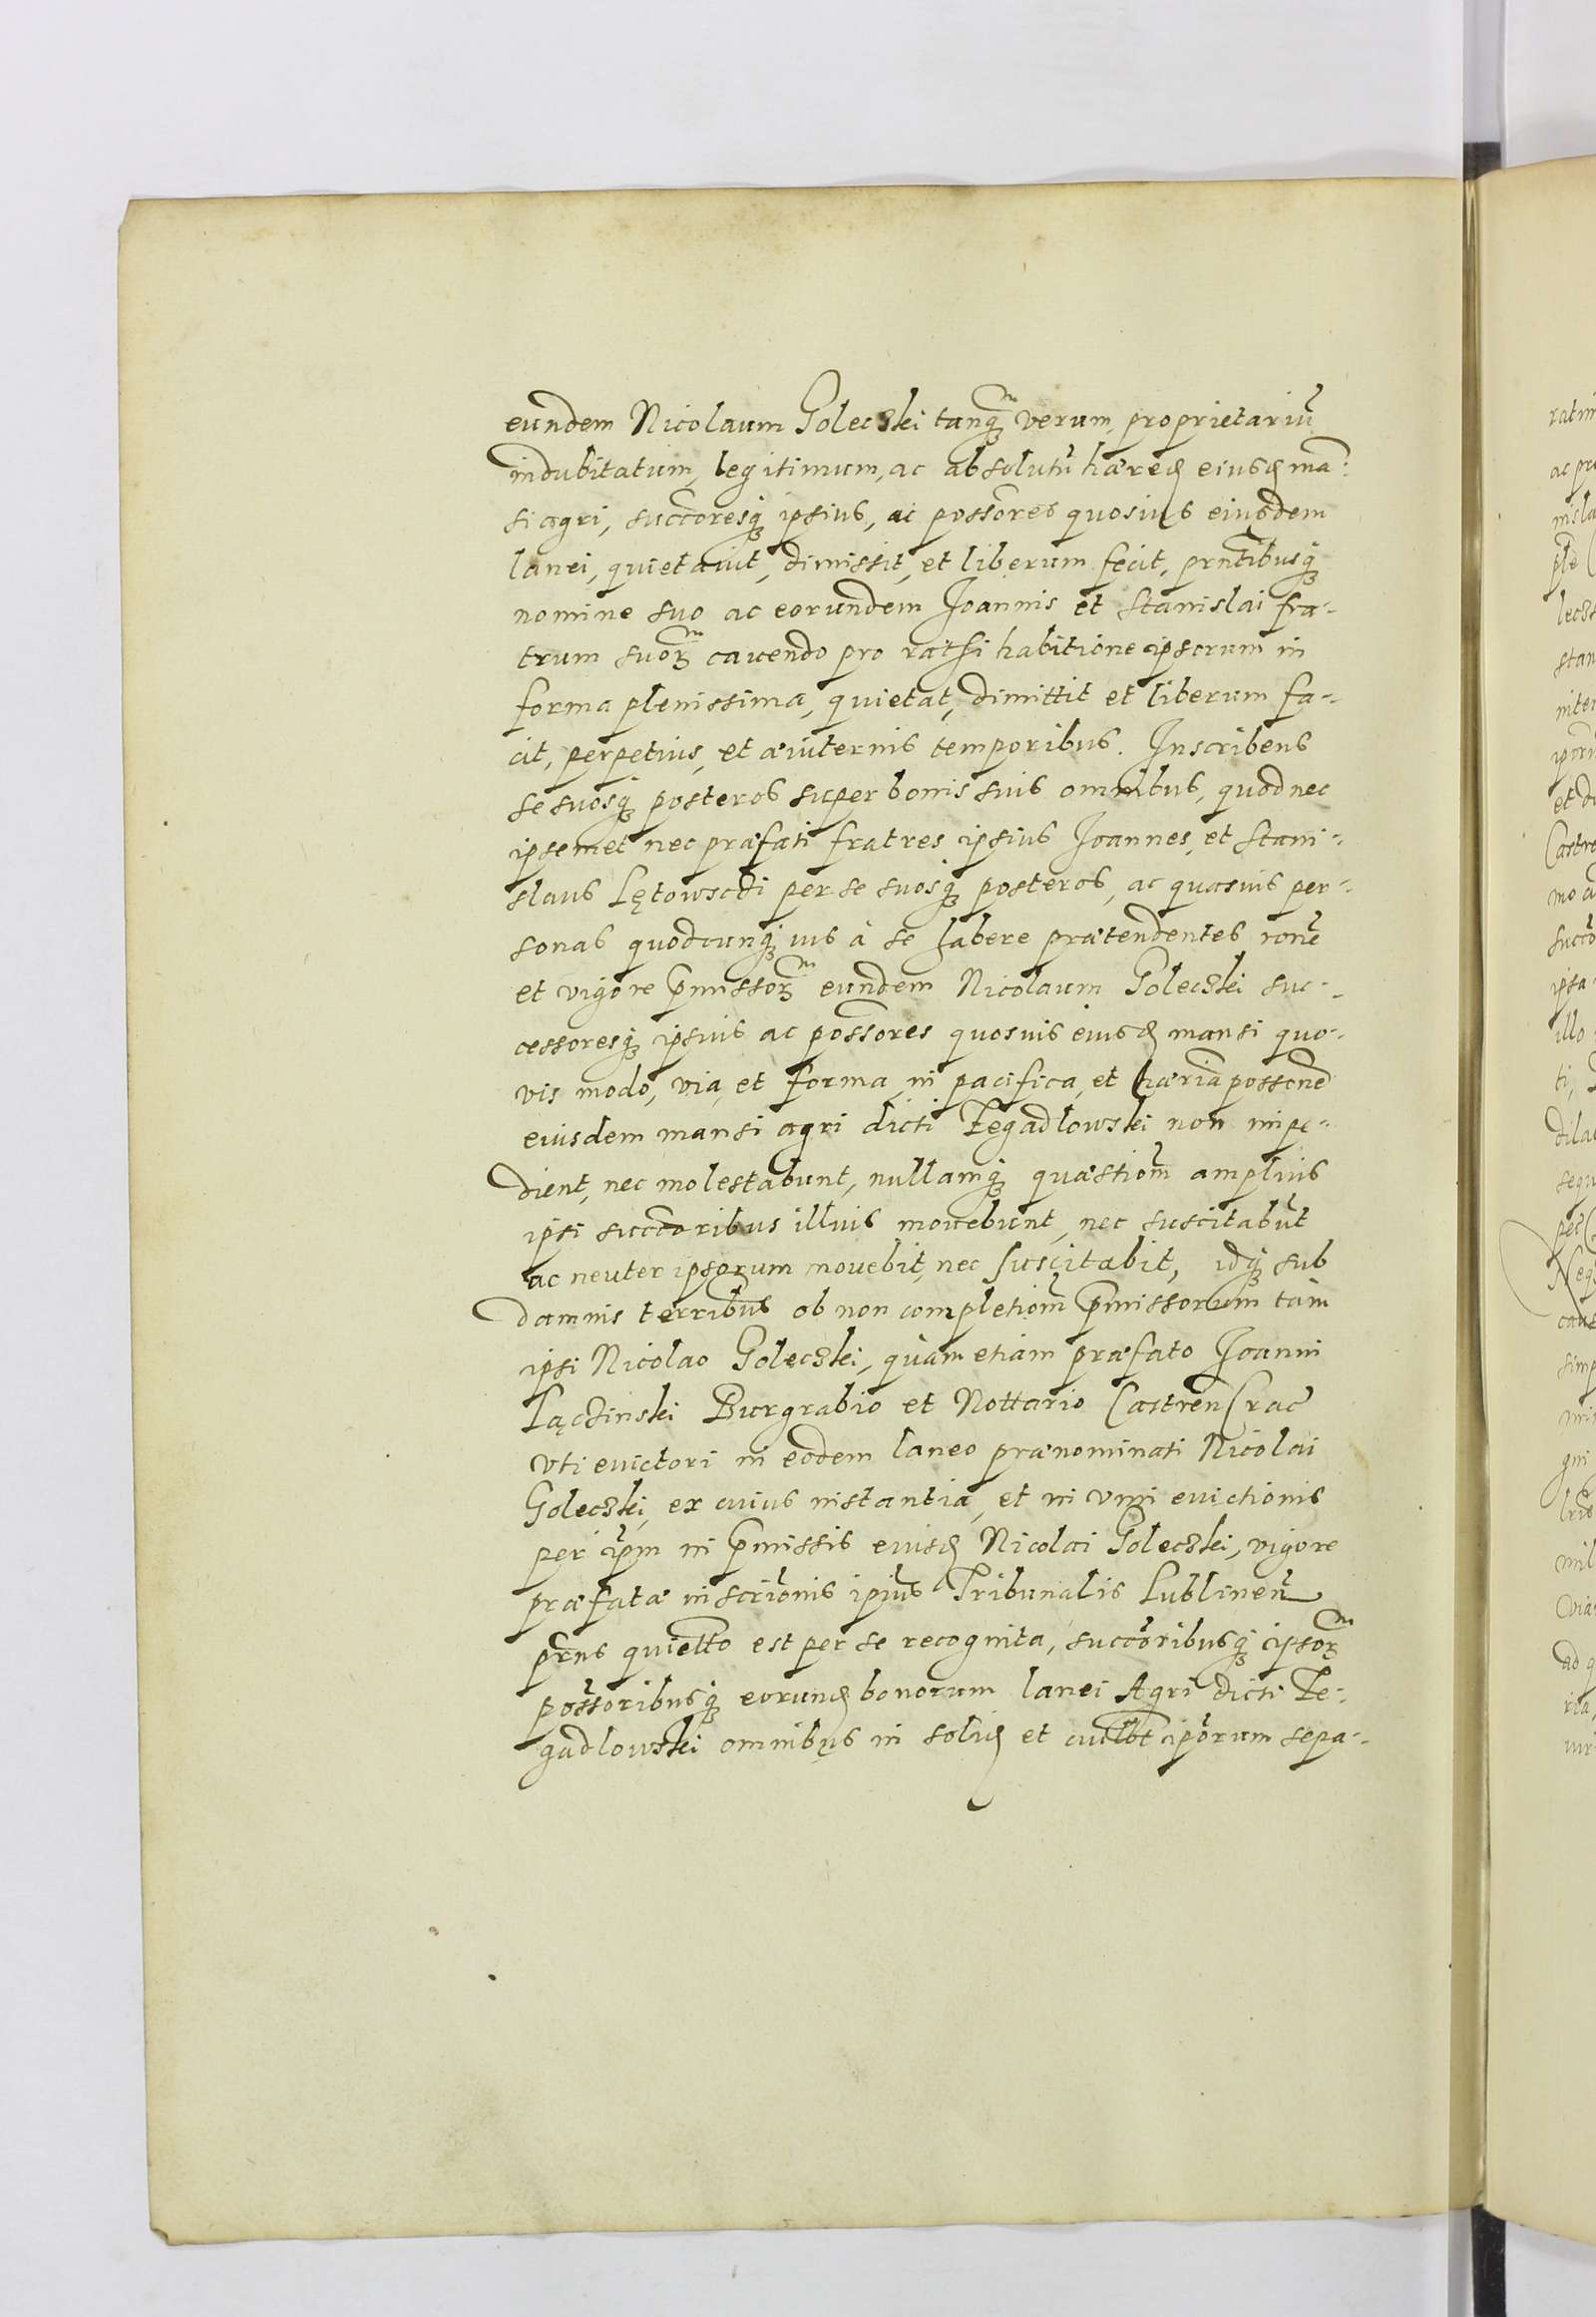 eundem Nicolaum Goleczki tanq̃ꝫ verum, proprietariũ
indubitatum, legitimum, ac absolutũ hæredẽ eiusdẽ man:
si agri, succoresqꝫ ipsius, ac possores quosius eiusdem
lanei, quietavit, dimissit, et liberum fecit, prntibusqꝫ
nomine suo ac eorundem Joannis et Stanislai fra-
trum suorꝫ cauendo pro rathi habitione ipsorum in
forma plenissima, quietat, dimittit et liberum fa-
cit, perpetius, et æuiternis temporibus. Inscribens
se suosqꝫ posteros super bonis suis omnibus, quod nec
ipsemet nec præfati fratres ipsius Joannes, et Stani-
slaus Lętowscÿ per se suosqꝫ posteros, ac quasuis per-
sonas quodcunqꝫ ius à se habere prætendentes rone
et vigore p̃missorꝫ eundem Nicolaum Goleczki suc-
cessoresqꝫ ipsius ac possores quosuis eiusdẽ mansi quo-
vis modo, via, et forma, in pacifica, et hæria possone
eiusdem mansi agri dicti Zegadlowski non impe-
dient, nec molestabunt, nullamqꝫ quæstiom̃ amplius
ipsi succoribus illius mouebunt, nec suscitabũt
ac neuter ipsorum mouebit, nec suscitabit, idqꝫ sub
damnis terribus ob non completiom̃ p̃missorum tàm
ipsi Nicolao Goleczki, quàm etiam præfato Joanni
Łączinski Burgrabio et Nottario Castren̄ Crac̄
vti euictori in eodem laneo prænominati Nicolai
Goleczki, ex cuius instantia, et in vim euictionis
per ipm̃ in p̃missis eiusdẽ Nicolai Goleczki, vigore
præfatæ inscrionis ipius Tribunalis Lublinen̄
prns quietto est per se recognita, succoribusqꝫ ipsorꝫ
possoribusqꝫ eorundẽ bonorum lanei Agri dicti Ze-
gadlowski omnibus in solidẽ et cuilbt iporum sepa-